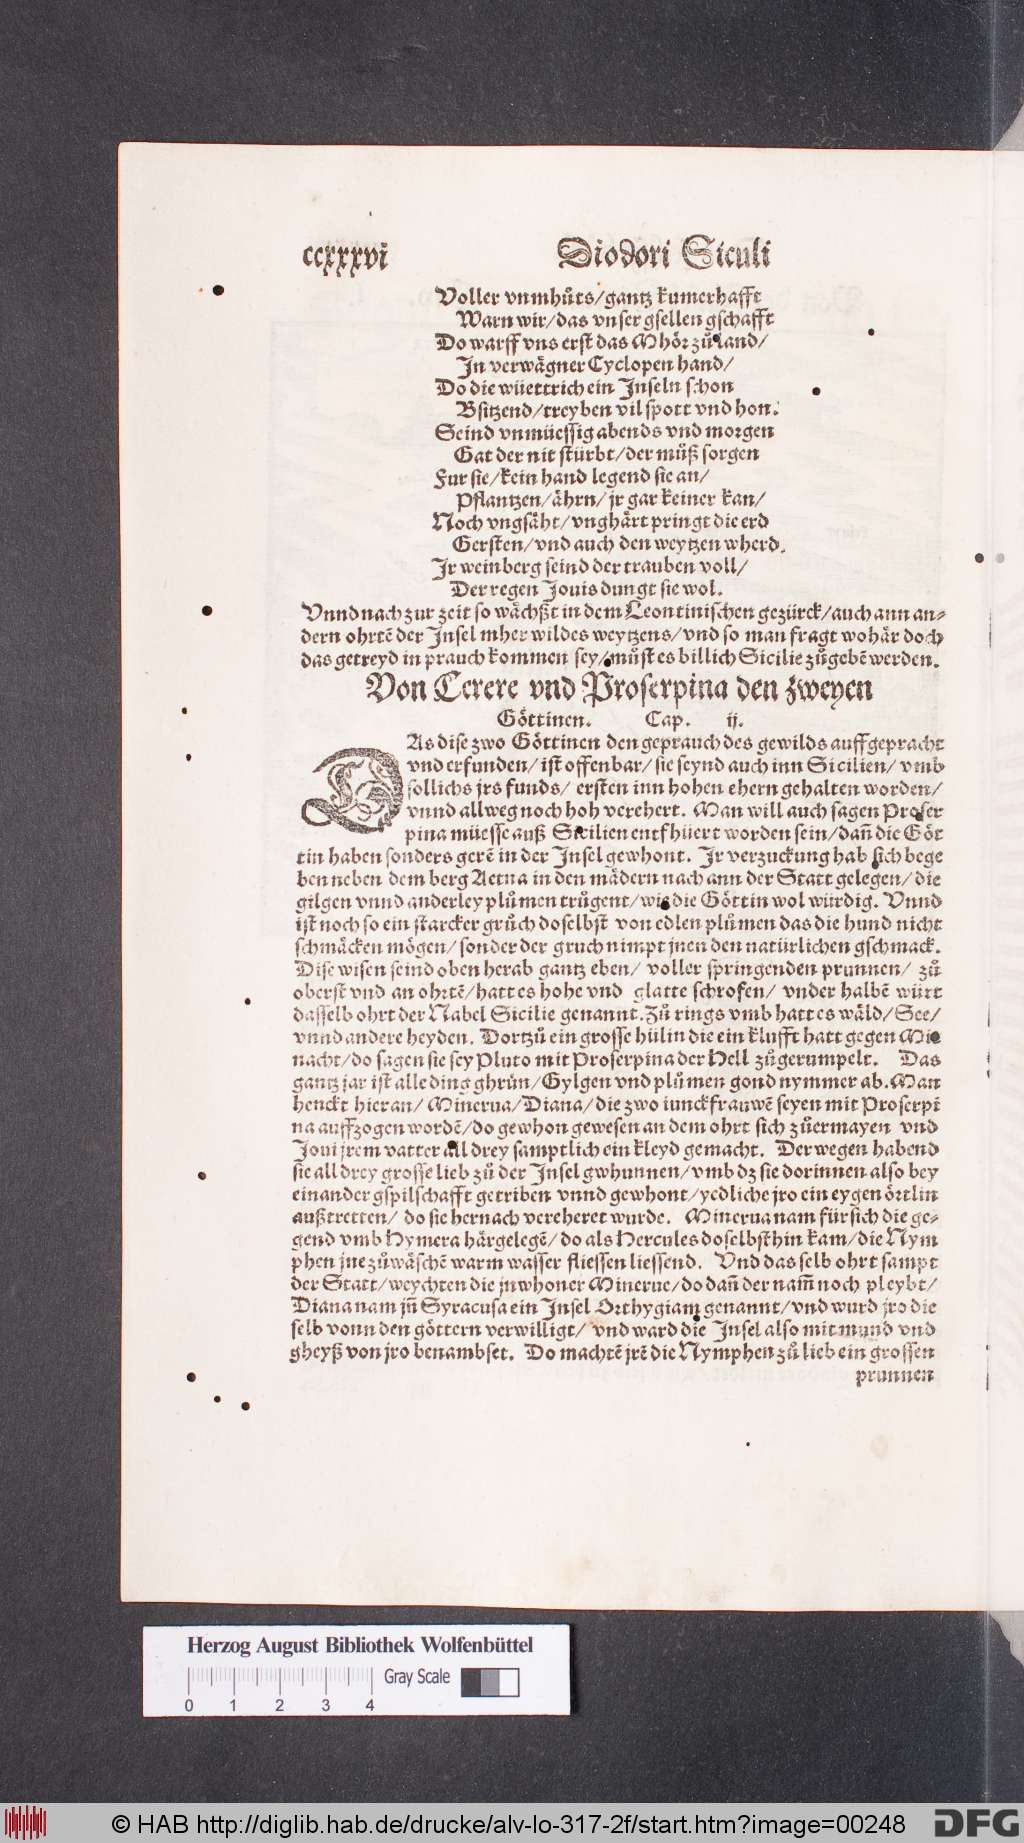 ccxxxvi Diodori Siculi
Voller vnmhůts/gantz kumerhafft
Warn wir/das vnser gsellen gschafft
Do warff vns erst das Mhör zů land/
In verwägner Cyclopen hand/
Do die wüettrich ein Inseln schon
Bsitzend/treyben vil spott vnd hon.
Seind vnmüessig abends vnd morgen
Gat der nit stürbt/der můß sorgen
Fur sie/kein hand legend sie an/
Pflantzen/ährn/jr gar keiner kan/
Noch vngsäht/vnghärt pringt die erd
Gersten/vnd auch den weytzen wherd.
Ir weinberg seind der trauben voll/
Der regen Jouis dungt sie wol.
Vnnd nach zur zeit so wächßt in dem Leontinischen gezürck/auch ann an-
dern ohrtē der Insel mher wildes weytzens/vnd so man fragt wohär doch
das getreyd in prauch kommen sey/můst es billich Sicilie zůgebē werden.
Von Cerere vnd Proserpina den zweyen
Göttinen. Cap. ij.
DAs dise zwo Göttinen den geprauch des gewilds auffgepracht
vnd erfunden/ist offenbar/sie seynd auch inn Sicilien/vmb
sollichs jrs funds/ ersten inn hohen ehern gehalten worden/
vnnd allweg noch hoh verehert. Man will auch sagen Proser
pina müesse auß Sicilien entfhüert worden sein/dañ die Göt
tin haben sonders gerē in der Insel gewhont. Ir verzuckung hab sich bege
ben neben dem berg Aetna in den mädern nach ann der Statt gelegen/die
gilgen vnnd anderley plůmen trůgent/wie die Göttin wol würdig. Vnnd
ist noch so ein starcker grůch doselbst von edlen plůmen das die hund nicht
schmäcken mögen/sonder der gruch nimpt jnen den natürlichen gschmack.
Dise wisen seind oben herab gantz eben/ voller springenden prunnen/ zů
oberst vnd an ohrtē/hatt es hohe vnd glatte schrofen/ vnder halbē würt
dasselb ohrt der Nabel Sicilie genannt.Zů rings vmb hatt es wäld/See/
vnnd andere heyden. Dortzů ein grosse hülin die ein klufft hatt gegen Mit
nacht/do sagen sie sey Pluto mit Proserpina der Hell zůgerumpelt. Das
gantz jar ist alle ding ghrün/Gylgen vnd plůmen gond nymmer ab.Man
henckt hieran/Minerua/Diana/die zwo iunckfrauwē seyen mit Proserpi
na auffzogen wordē/do gewhon gewesen an dem ohrt sich zůermayen vnd
Joui jrem vatter all drey samptlich ein kleyd gemacht. Derwegen habend
sie all drey grosse lieb zů der Insel gwhunnen/vmb dz sie dorinnen also bey
einander gspilschafft getriben vnnd gewhont/yedliche jro ein eygen örtlin
außtretten/ do sie hernach vereheret wurde. Minerua nam für sich die ge-
gend vmb Hymera härgelegē/do als Hercules doselbst hin kam/die Nym
phen jne zůwäschē warm wasser fliessen liessend. Vnd das selb ohrt sampt
der Statt/weychten die jnwhoner Minerue/do dañ der nam̃ noch pleybt/
Diana nam jñ Syracusa ein Insel Orthygiam genannt/vnd wurd jro die
selb vonn den göttern verwilligt/ vnd ward die Insel also mit mund vnd
gheyß von jro benambset. Do machtē jrē die Nymphen zů lieb ein grossen
prunnen
Herzog August Bibliothek Wolfenbüttel
Gray Scale
0 1 2 3 4
© HAB http://diglib.hab.de/drucke/alv-lo-317-2f/start.htm?image=00248 DFG